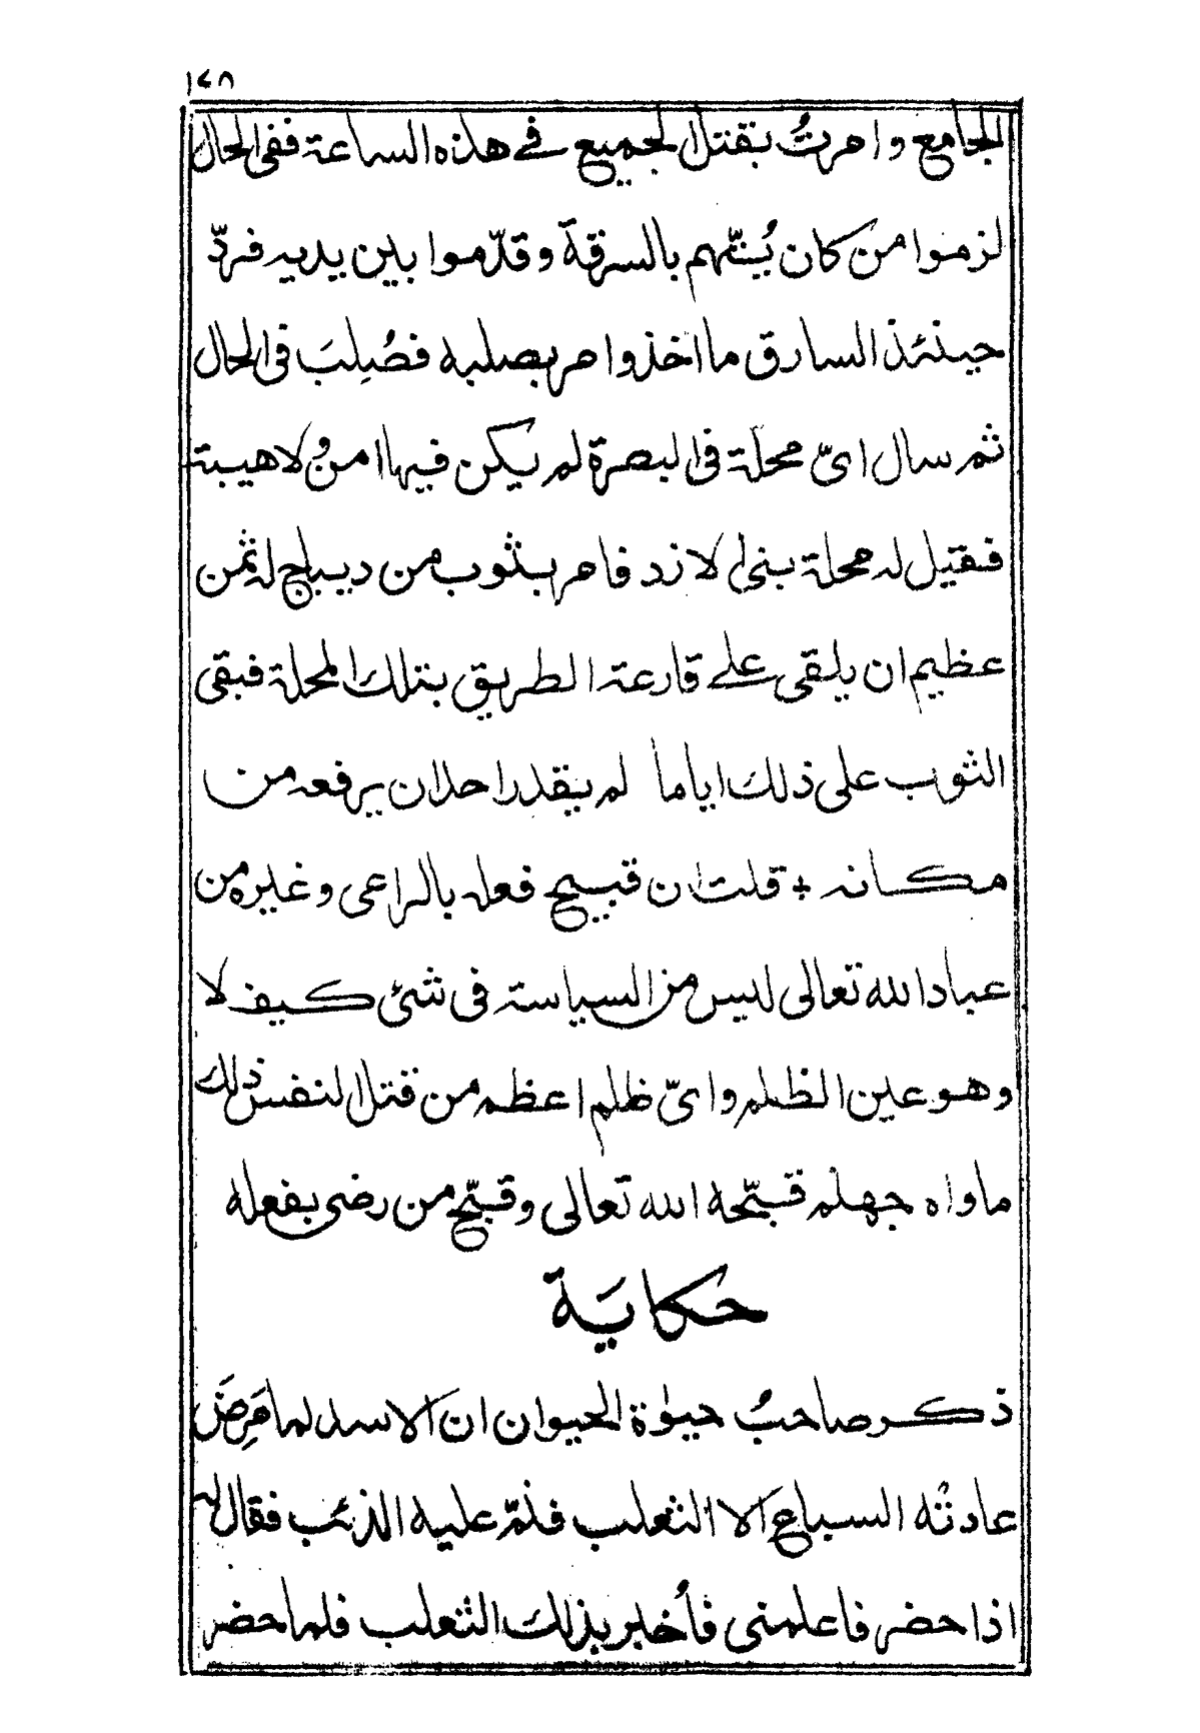 ١٤٨
الجامع وامرتُ بقتل لجميع في هذه الساعة ففى الحال
لزموا من كان يُتّهم بالسرقة وقدّموا بين يديه فردّ
حينئذ السارق ما اخذ وامر بصلبه فصُلِبَ فى الحال
ثم سال اىّ محلة فى البصرة لم يكن فيها امنٌ ولا هيبة
فقيل له محلة بنى الازد فامر بثوب من ديباج له ثمن
عظيم ان يلقى على قارعة الطريق بتلك المحلة فبقى
الثوب على ذلك اياما لم يقدر احد ان يرفعه من
مكانه + قلت ان قبيح فعله بالراعى وغيره من
عباد الله تعالى ليس من السياسة فى شئ كيف لا
وهو عين الظلم واىّ ظلم اعظم من قتل النفس ذلك
ماواه جهنم قبّحه الله تعالى وقبّح من رضى بفعله
حكاية
ذكر صاحبُ حيٰوة الحيوان ان الاسد لما مَرِضَ
عادتْه السباع الا الثعلب فنمّ عليه الذئب فقال له
اذا حضر فاعلمنى فأُخبر بذلك الثعلب فلما حضر